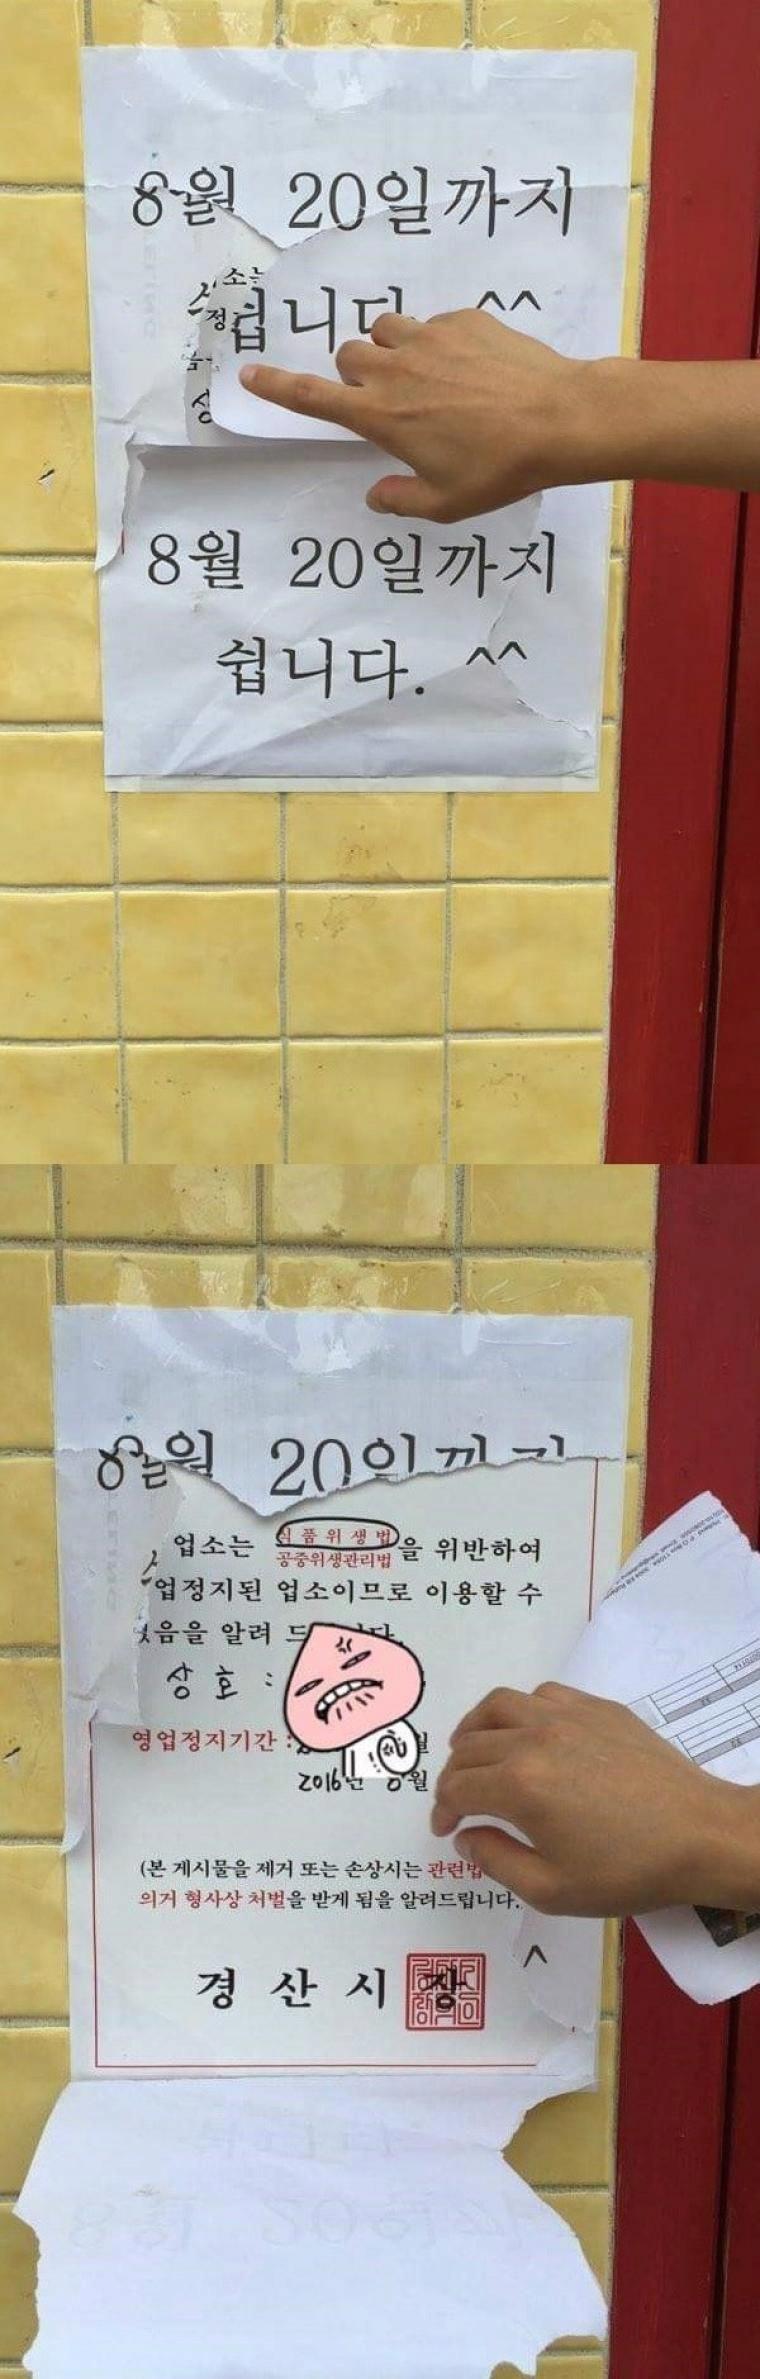 8월 20일까지
소는
정
쉽니다. ^^
8월 20일까지
쉽니다. ^^
8월 20일까지
업소는 식품위생법
공중위생관리법 을 위반하여
업정지된 업소이므로 이용할 수
음을 알려 드
상호 :
영업정지기간 :
2016년 8월
(본 게시물을 제거 또는 손상시는 관련법
의거 형사상 처벌을 받게 됨을 알려드립니다.
^
경산시장